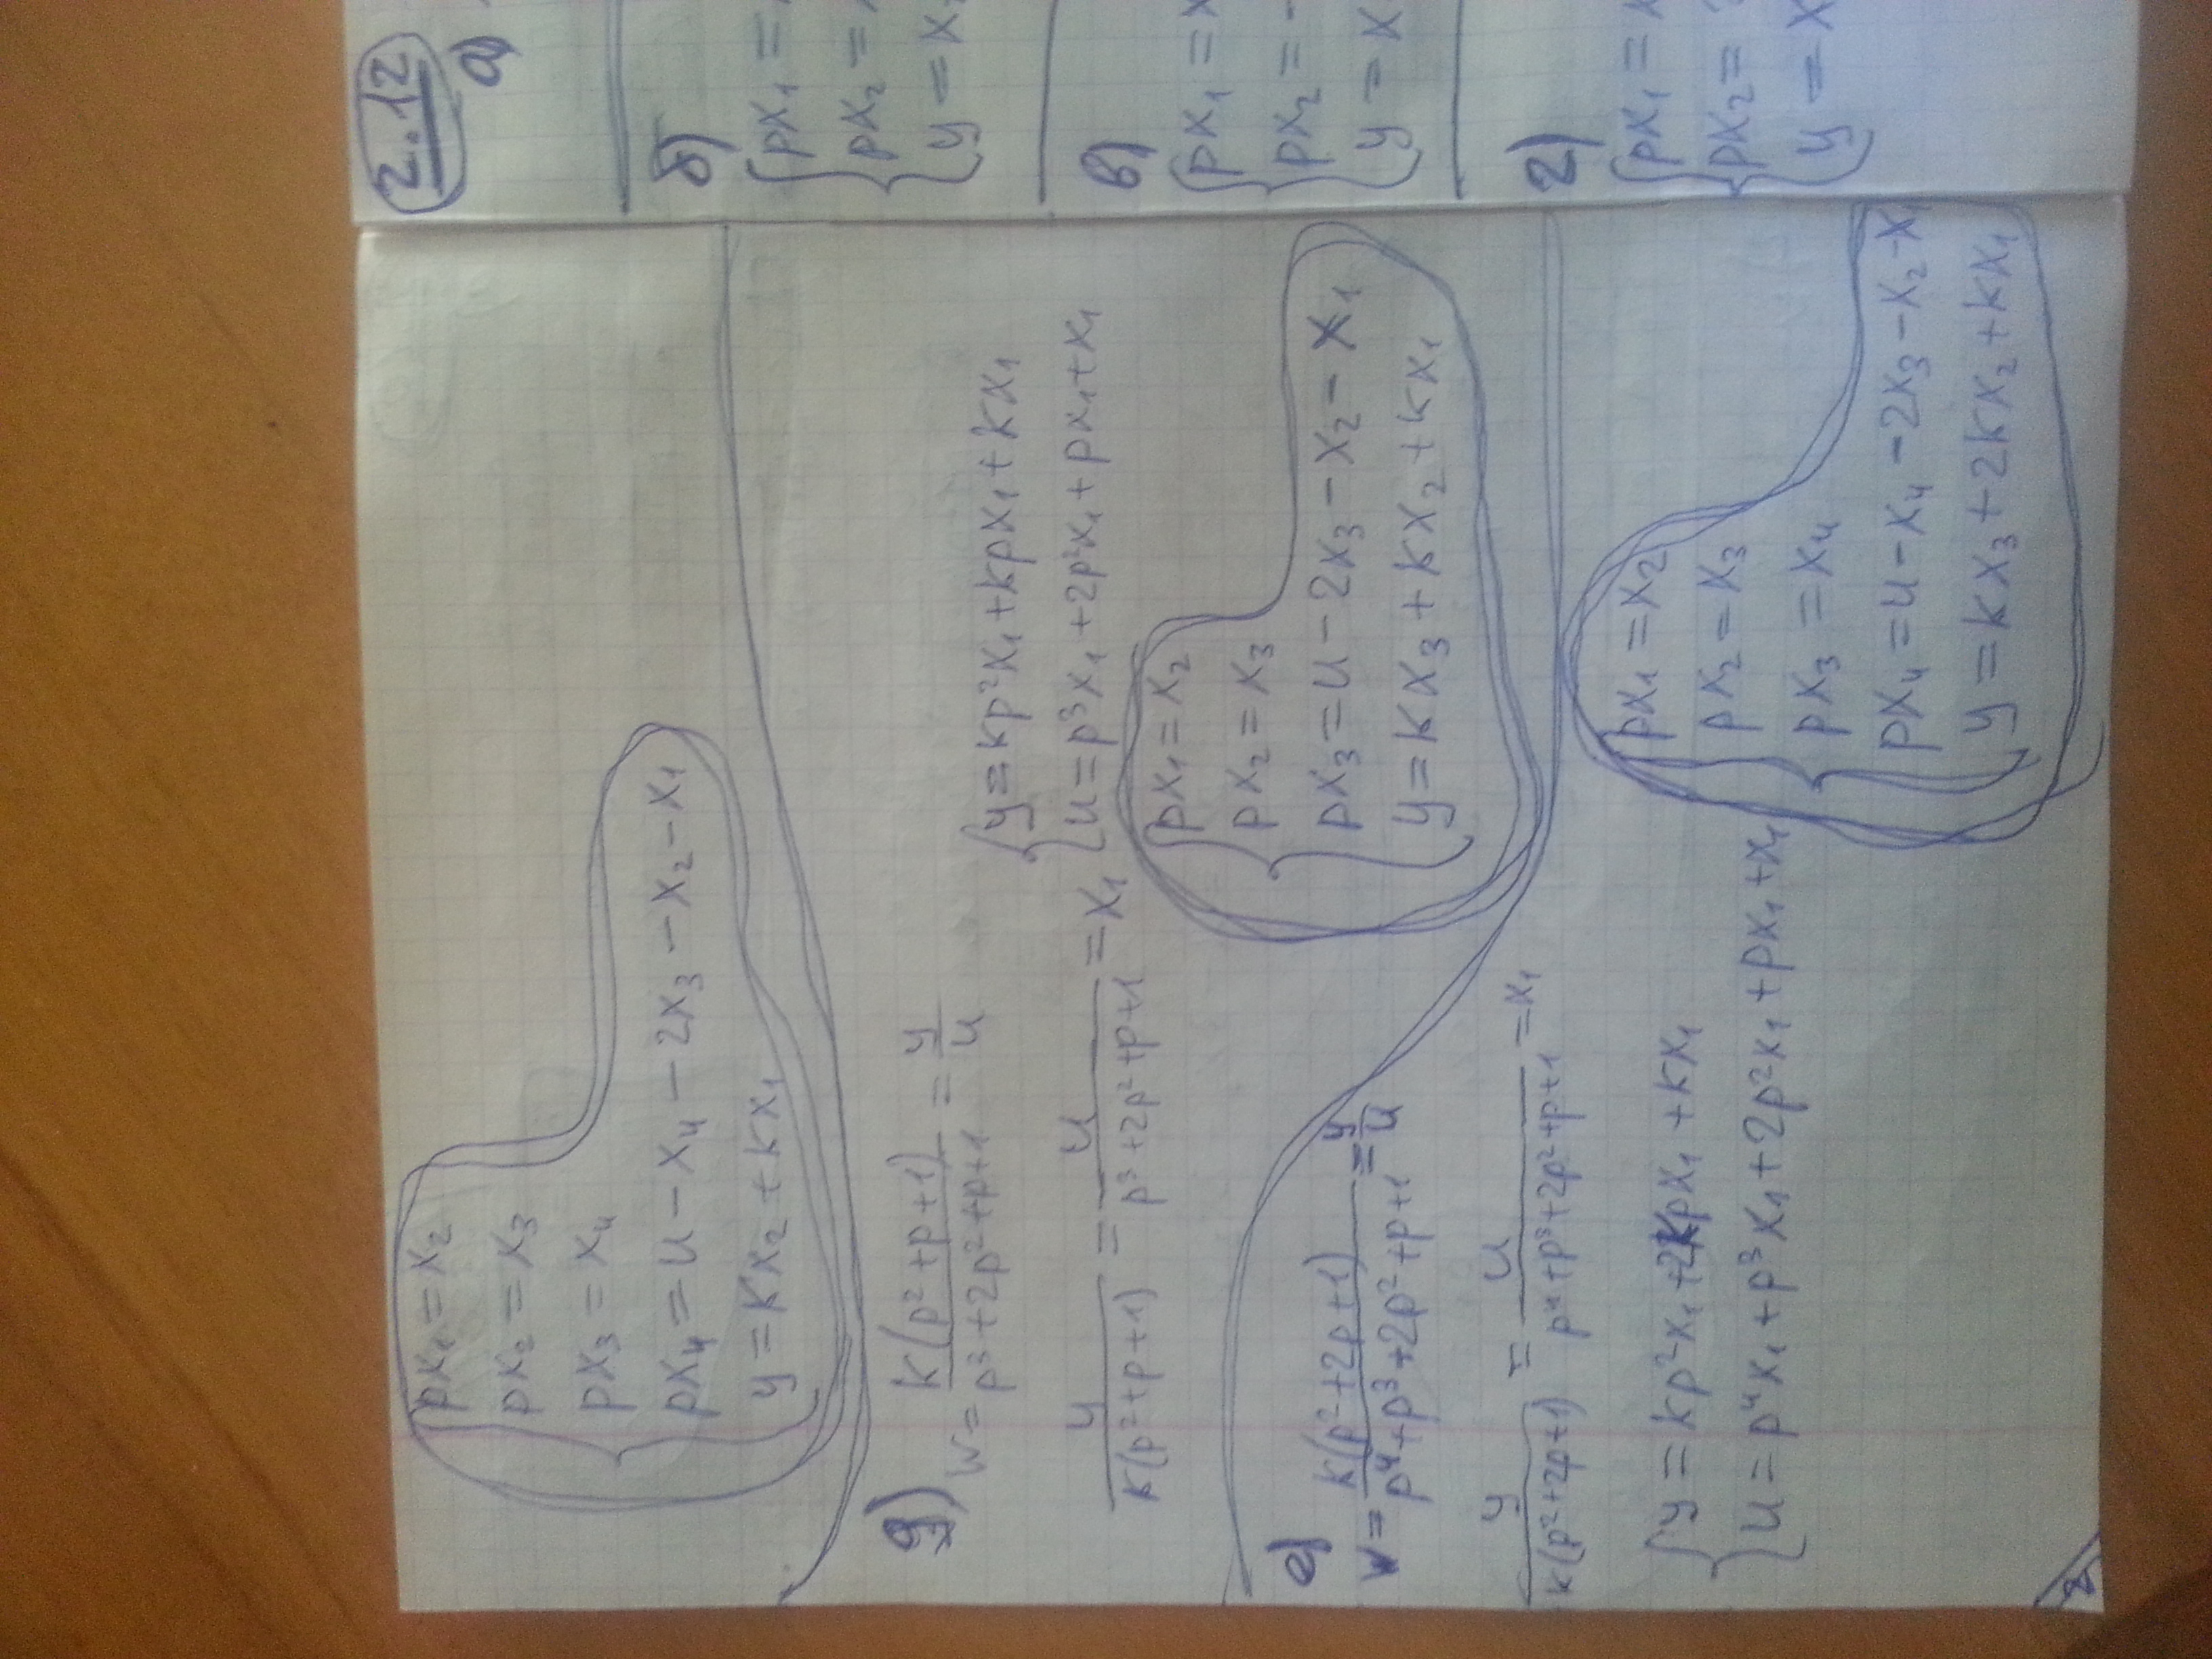 px₁ = x₂
px₂ = x₃
px₃ = x₄
px₄ = u - x₄ - 2x₃ - x₂ - x₁
y = kx₂ + kx₁
д)
W = k(p² + p + 1) / (p³ + 2p² + p + 1) = y/u
y / (k(p² + p + 1)) = u / (p³ + 2p² + p + 1) = x₁
y = kp²x₁ + kpx₁ + kx₁
u = p³x₁ + 2p²x₁ + px₁ + x₁
px₁ = x₂
px₂ = x₃
px₃ = u - 2x₃ - x₂ - x₁
y = kx₃ + kx₂ + kx₁
е)
W = k(p² + 2p + 1) / (p⁴ + p³ + 2p² + p + 1) = y/u
y / (k(p² + 2p + 1)) = u / (p⁴ + p³ + 2p² + p + 1) = x₁
y = kp²x₁ + 2kpx₁ + kx₁
u = p⁴x₁ + p³x₁ + 2p²x₁ + px₁ + x₁
px₁ = x₂
px₂ = x₃
px₃ = x₄
px₄ = u - x₄ - 2x₃ - x₂ - x₁
y = kx₃ + 2kx₂ + kx₁
2
2.12
а)
б)
px₁ =
px₂ =
y = x
в)
px₁ = x
px₂ = -
y = x
г)
px₁ = x
px₂ =
y = x